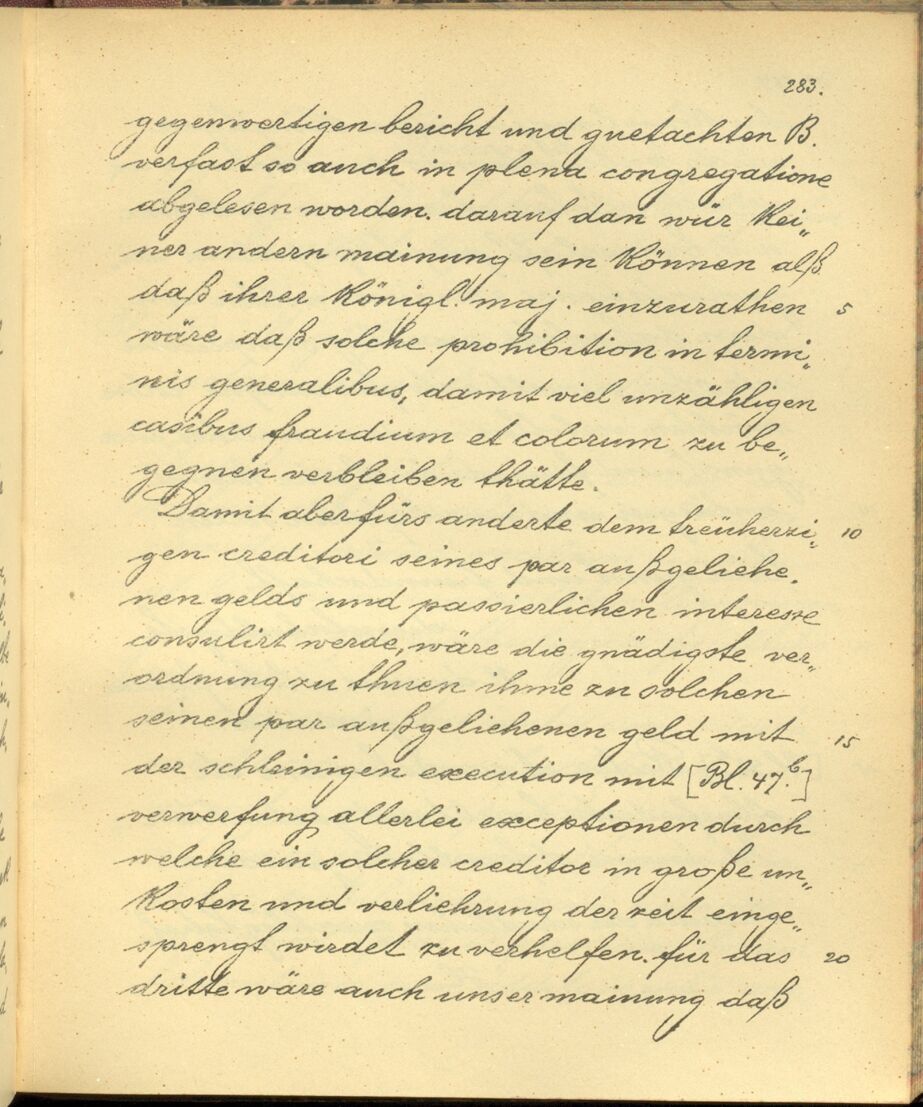 283.
gegenwertigen bericht und guetachten B.
verfast so auch in plena congregatione
abgelesen worden. darauf dan wür kei„
ner andern mainung sein können alß
daß ihrer königl. maj. einzurathen 5
wäre daß solche prohibition in termi„
nis generalibus, damit viel unzähligen
casibus fraudium et colorum zu be„
gegnen verbleiben thätte.
Damit aber fürs anderte dem treüherzi„ 10
gen creditori seines par außgeliehe„
nen gelds und passierlichen interesse
consulirt werde, wäre die gnädigste ver„
ordnung zu thuen ihme zu solchen
seinen par außgeliehenen geld mit 15
der schleinigen execution mit [Bl. 47.b]
verwerfung allerlei exceptionen durch
welche ein solcher creditor in große un„
kosten und verliehrung der zeit einge„
sprengt wirdet zu verhelfen. für das 20
dritte wäre auch unser mainung daß